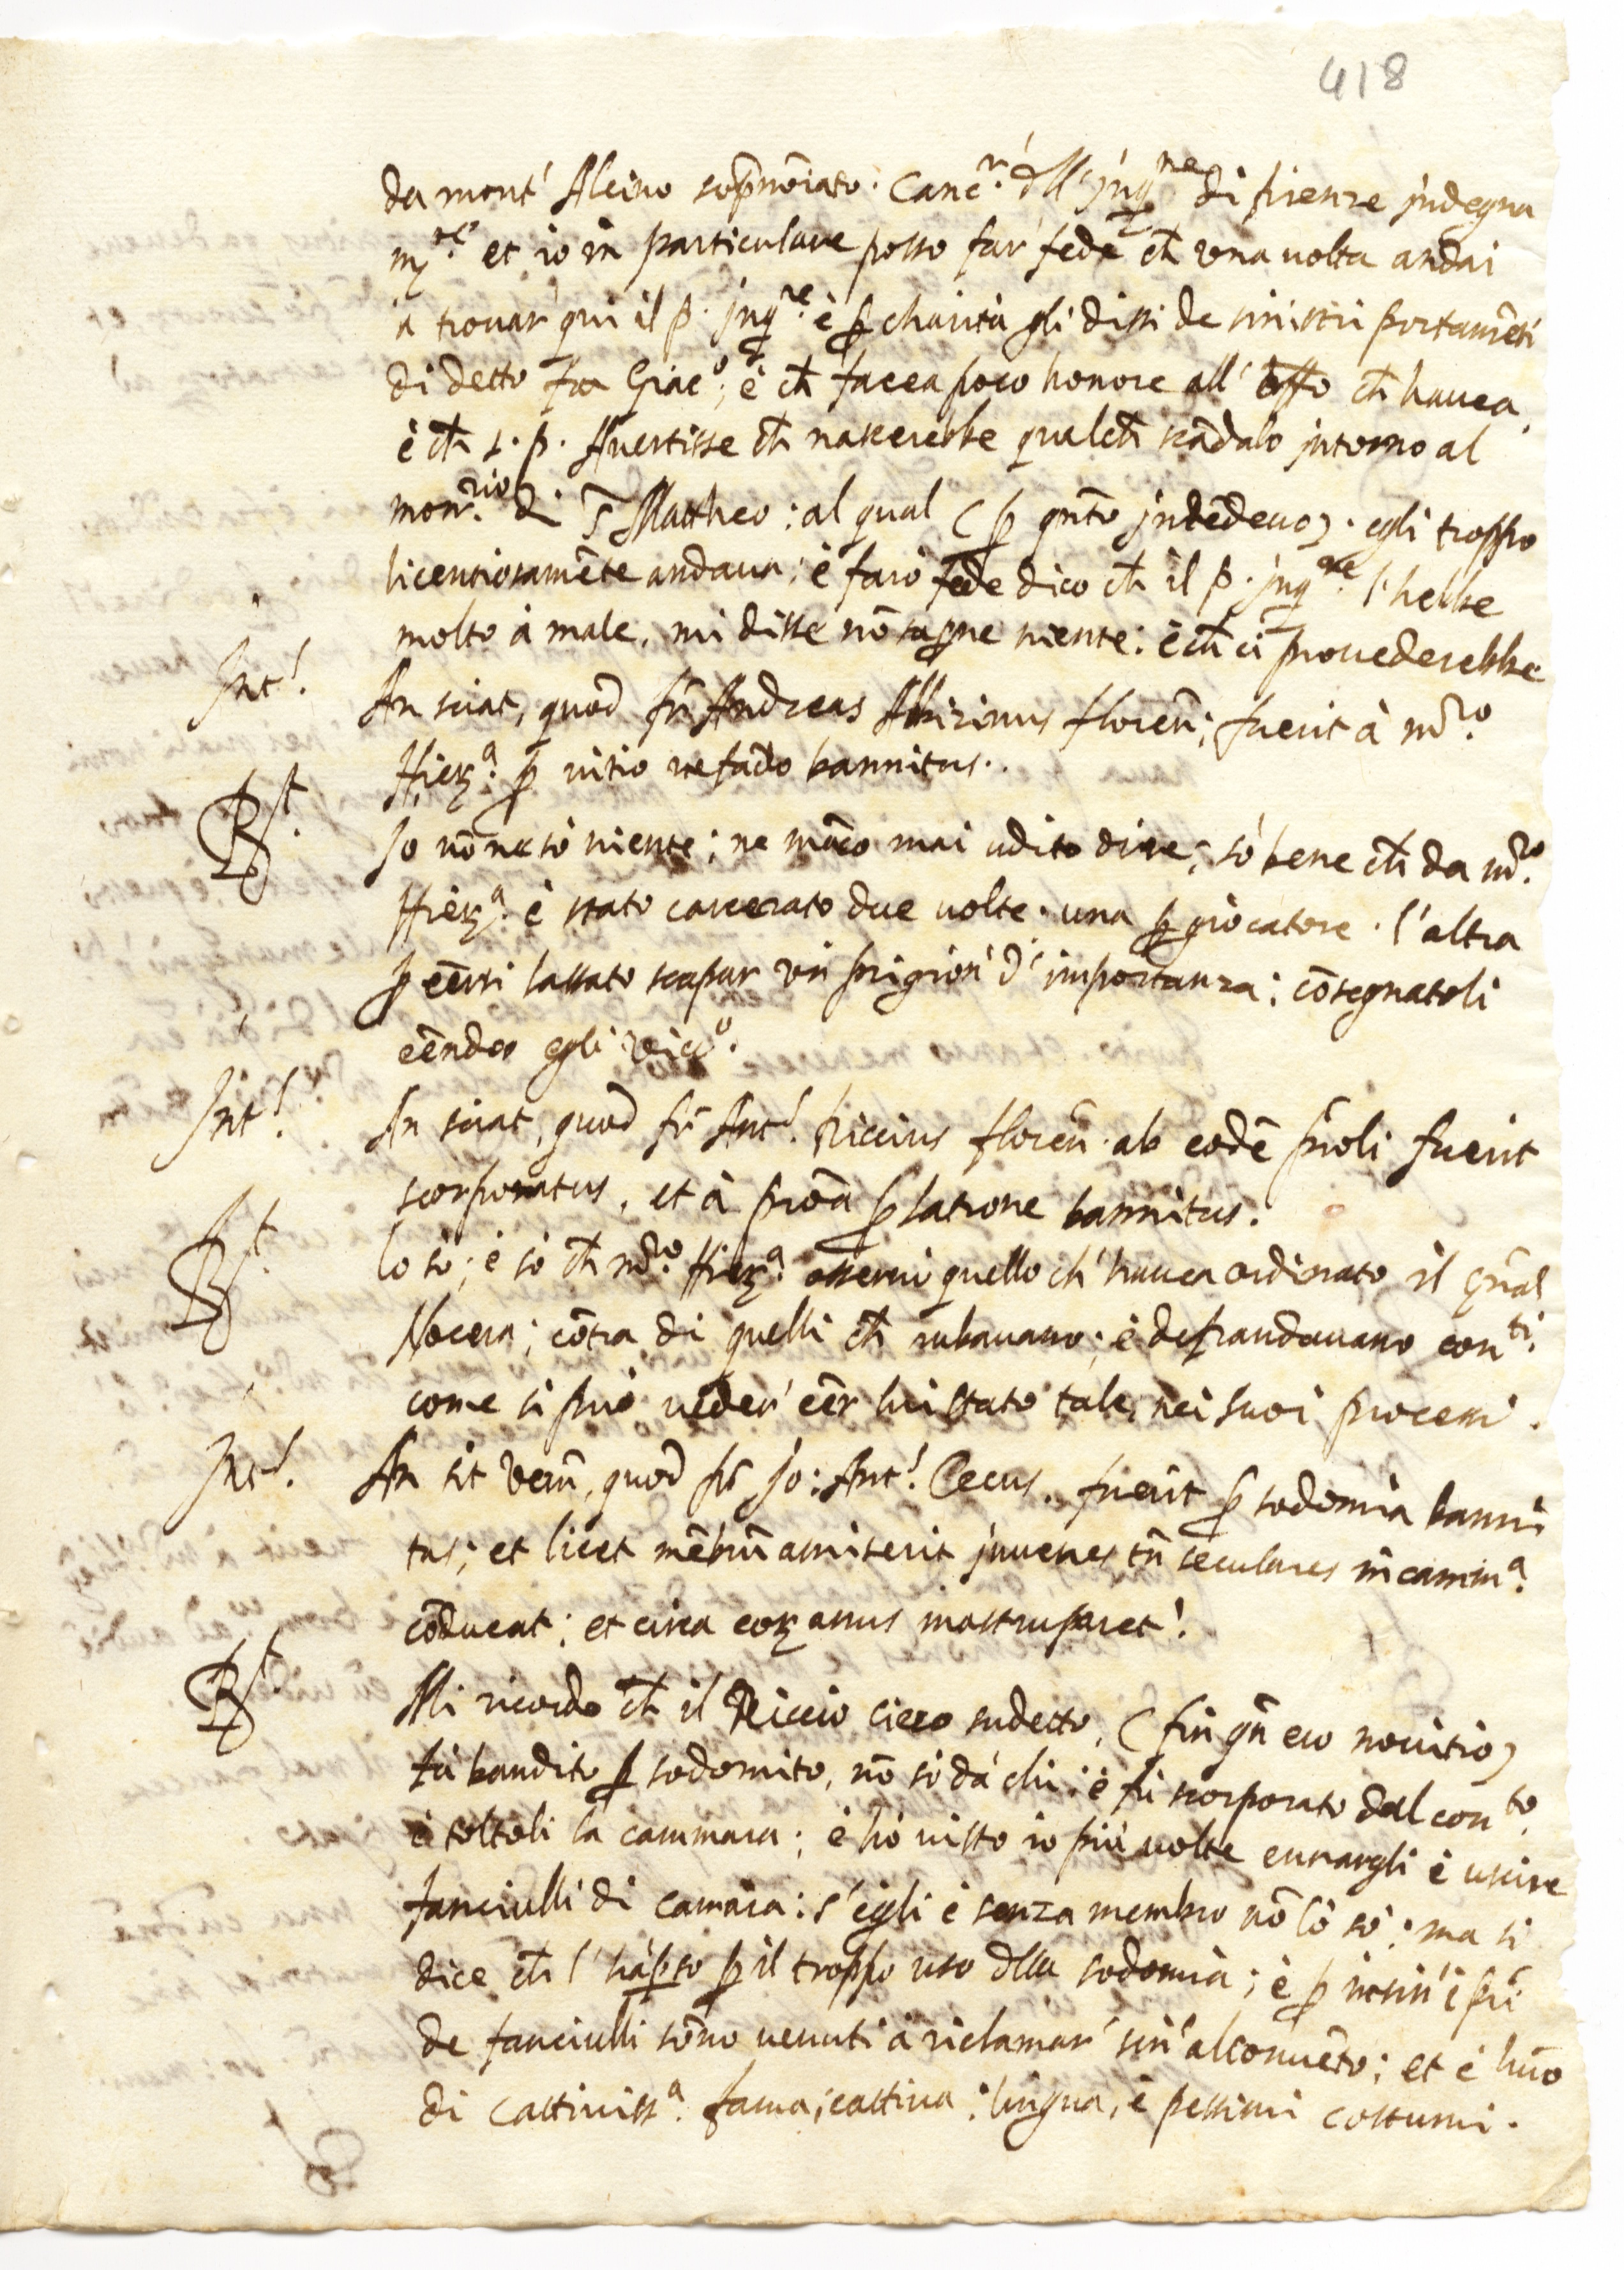 418
da mont' Alcino sop̄nōiato. Canc.r' dll' jnq.ne di firenze jndegna
m.te et io in particulare posso far' fede ch̄ una uolta andai
à trouar' qui il p. jnq.re è ꝑ charità gli dissi de sinistri portamēti
di detto fra Giac.o; è ch̄ facea poco honore all' offo ch̄ hauea,
è ch̄ s. p. Auertisse ch̄ nascerebbe qualch̄ scādalo jntorno al
mon.rio di S. Mattheo: al qual (ꝑ qnto jntēdeuo). egli troppo
licentiosamēte andaua; è farò fede dico ch̄ il p. jnq.re l'hebbe
molto à male, mi disse nō saꝑne niente: è ch̄ ci prouederebbe
Int.! An sciat, quod fr̄ Andreas Albizinus floren̄; fuerit à m̄.ro
Hier.a ꝑ uitio nefādo bannitus.
R.t Io nō ne sò niente; ne māco mai udito dire; sò bene ch̄ da m̄.ro
Hier.a è stato carcerato due uolte. una ꝑ giocatore. l'altra
ꝑ eērsi lassato scapar un prigion' d' importanza; cōsegnatoli
eēndo egli vic.o.
Int.! An sciat, quod fr̄ Ant.! Riccius floren̄. ab eodē p̄roli fuerit
scorporatus, et à prōa ꝑ latrone bannitus.
R.t Lo sò; è sò ch̄ m̄.ro Hier.a osseruò quello ch' hauea ordinato il gn̄al
Nocera; cōtra di quelli ch̄ rubauano; è defraudauano con.ti.
come si può ueder' eēr lui stato tale, nei suoi processi.
Int.! An sit verū, quod fr̄ Jo: Ant.! Cecus. fuerit ꝑ sodomia banni
tus; et licet mēbrū amiserit juuenes tn̄ seculares in camm.a
cōducat; et circa eoꝝ anus mastruparet!
R.t Mi ricordo ch̄ il Riccio cieco sudetto, (fin qn̄ ero nouitio)
fù bandito ꝑ sodomito, nō sò da chi: è fù scorporato dal con.to.
è toltoli la cammara; è hò uisto io più uolte entrargli è uscire
fanciulli di camara: s'egli è senza membro nō lo sò; ma si
dice ch̄ l' hà ꝑso ꝑ il troppo uso dlla sodomia; è ꝑ insin' i pri
de fanciulli sōno uenuti à riclamar' sin' al conuēto; et è huō
di cattiuiss.a fama, cattiua lingua, è pessimi costumi.